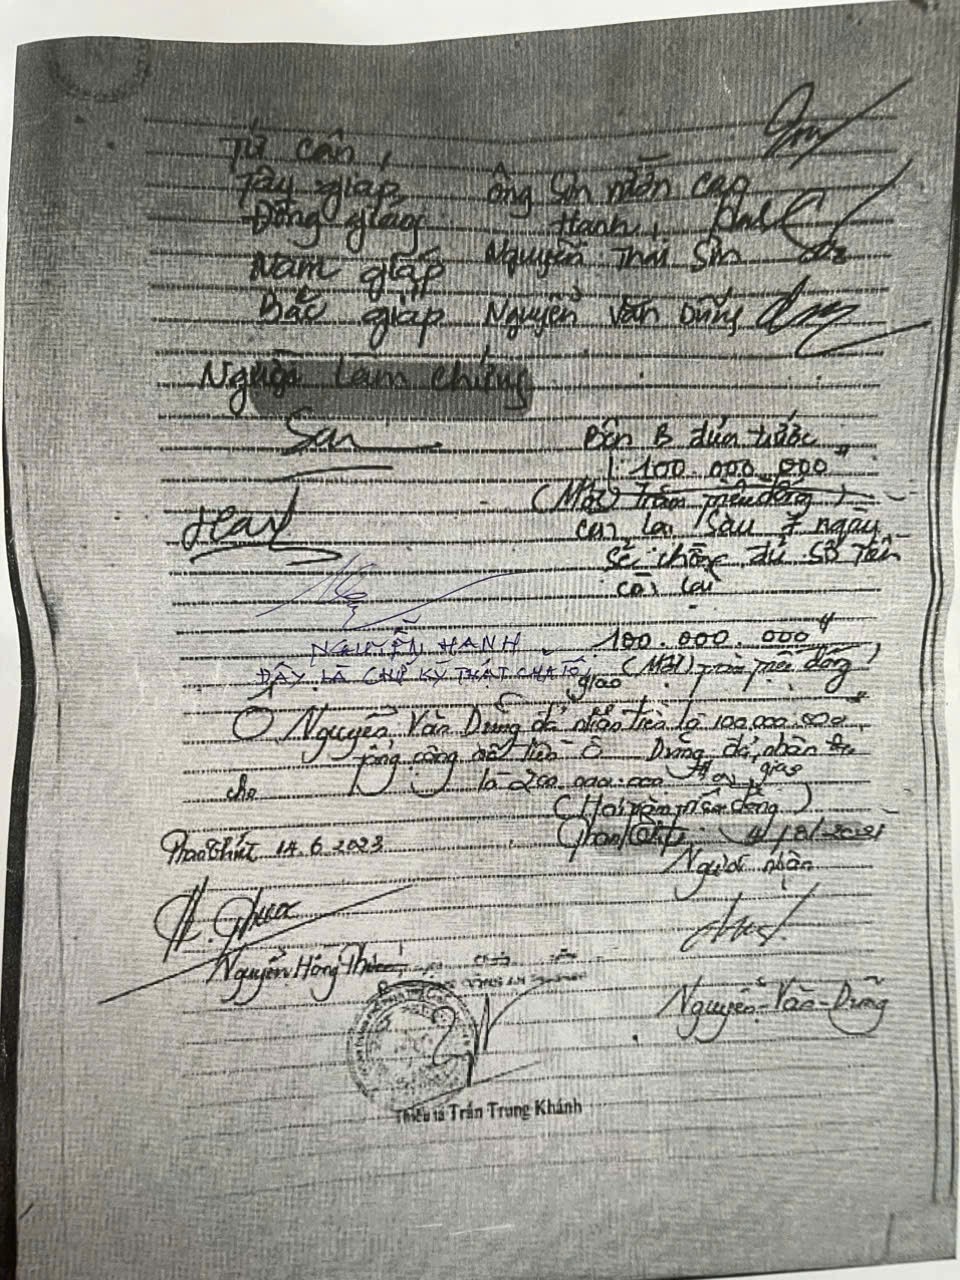 Tứ cận,
Tây giáp ông Sìn mỏn cao
Đông giáp Hanh,
Nam giáp Nguyễn Thái Sìn
Bắc giáp Nguyễn Văn Dũng
Người làm chứng
San
Bên B đưa trước
100.000.000đ
(Một trăm triệu đồng)
Hanh
còn lại sau 7 ngày
sẽ chồng đủ số tiền
còn lại
NGUYỄN HANH
100.000.000đ
ĐÂY LÀ CHỮ KÝ THẬT CỦA TÔI
(Một trăm triệu đồng)
giao
Ô Nguyễn Văn Dũng đã nhận tiền là 100.000.000đ
tổng cộng số tiền Ô Dũng đã nhận
là 200.000.000đ
cho
(Hai trăm triệu đồng)
Phan Thiết 14.6.2023
Người nhận
H. Phước
Nguyễn Hồng Phước
Nguyễn Văn Dũng
Thiếu tá Trần Trung Khánh